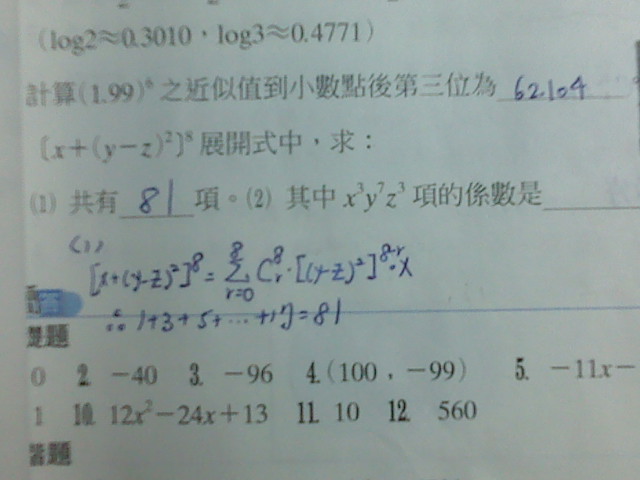 (log2≈0.3010，log3≈0.4771)
計算(1.99)⁶之近似值到小數點後第三位為 62.104
〔x+(y−z)²〕⁸展開式中，求：
(1) 共有 81 項。(2) 其中 x³y⁷z³ 項的係數是
(1)
[x+(y-z)²]⁸ = Σ_{r=0}^{8} C_r^8 · [(y-z)²]^{8-r} · x
∴ 1+3+5+…+17=81
題
0 2. −40 3. −96 4. (100，−99) 5. −11x−
1 10. 12x²−24x+13 11. 10 12. 560
題